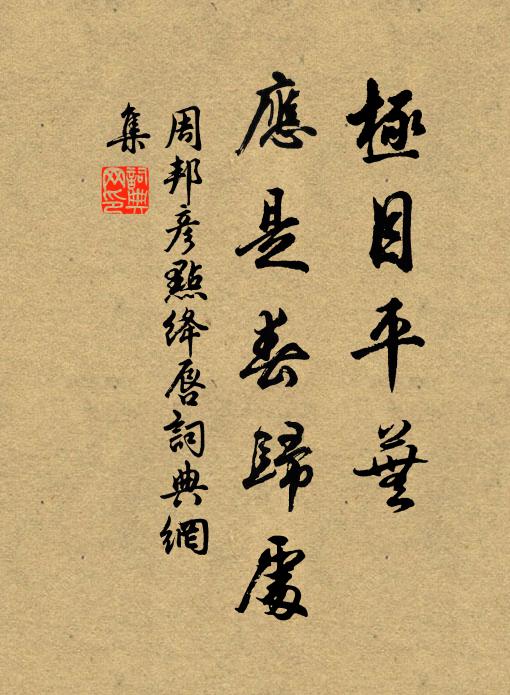 極目平蕪
應是春歸處
周邦彥點絳唇詞典網
集
詞典
网印